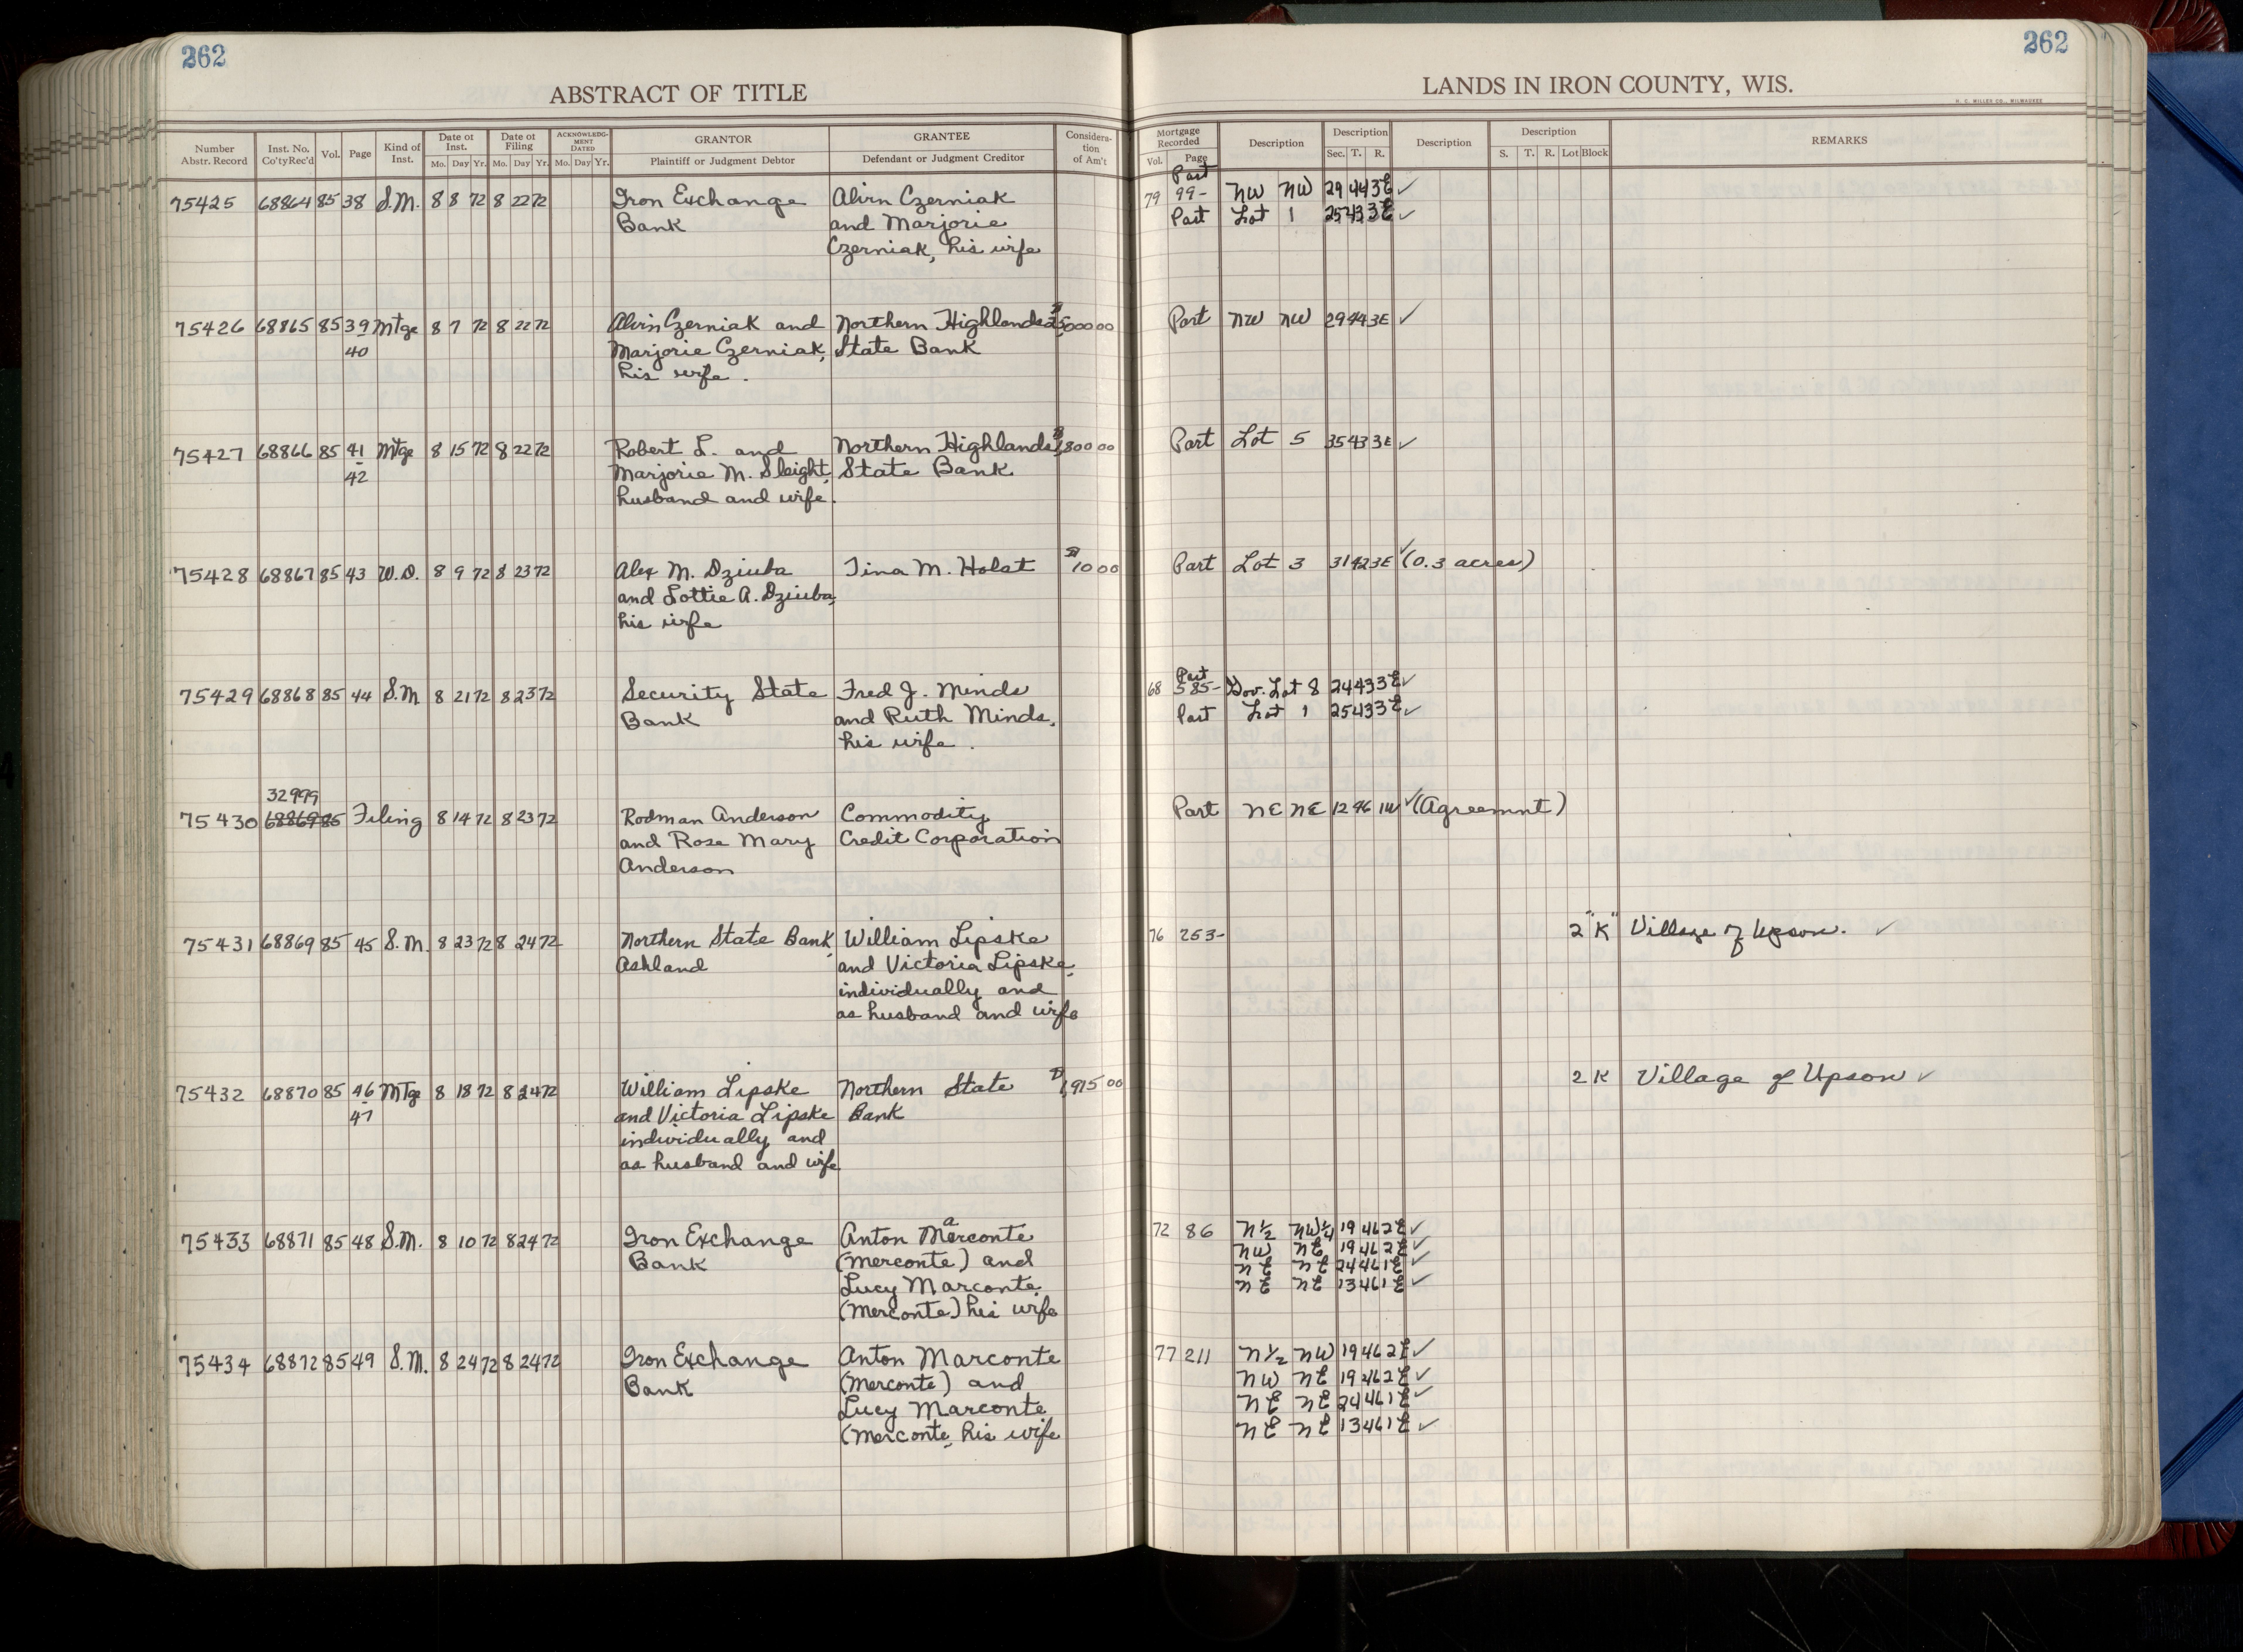 262
262
ABSTRACT OF TITLE
LANDS IN IRON COUNTY, WIS.
H. C. MILLER CO., MILWAUKEE
Number Abstr. Record | Inst. No. Co'tyRec'd | Vol. | Page | Kind of Inst. | Date of Inst. Mo. Day Yr. | Date of Filing Mo. Day Yr. | ACKNOWLEDGMENT DATED Mo. Day Yr. | GRANTOR Plaintiff or Judgment Debtor | GRANTEE Defendant or Judgment Creditor | Consideration of Am't | Mortgage Recorded Vol. Page | Description | Description Sec. T. R. | Description | Description S. T. R. Lot Block | REMARKS
Part
75425 68864 85 38 S.M. 8 8 72 8 22 72 Iron Exchange Alvin Czerniak 79 99- NW NW 29 44 3E ✓
Bank and Marjorie Part Lot 1 25 43 3E ✓
Czerniak, his wife
75426 68865 85 39 Mtge 8 7 72 8 22 72 Alvin Czerniak and Northern Highlands 000 00 Part NW NW 29 44 3E ✓
40 Marjorie Czerniak, State Bank
his wife.
75427 68866 85 41 Mtge 8 15 72 8 22 72 Robert L. and Northern Highlands 800 00 Part Lot 5 35 43 3E ✓
42 Marjorie M. Sleight, State Bank
husband and wife.
75428 68867 85 43 W.D. 8 9 72 8 23 72 Alex M. Dziuba Tina M. Holst 10 00 Part Lot 3 31 42 3E ✓ (0.3 acres)
and Lottie A. Dziuba,
his wife
Part
75429 68868 85 44 S.M 8 21 72 8 23 72 Security State Fred J. Minds 68 585- Gov. Lot 8 24 43 3E ✓
Bank and Ruth Minds, Part Lot 1 25 43 3E ✓
his wife.
32999
75430 68869 85 Filing 8 14 72 8 23 72 Rodman Anderson Commodity Part NE NE 12 46 1W ✓ (Agreemnt)
and Rose Mary Credit Corporation
Anderson
75431 68869 85 45 S.M. 8 23 72 8 24 72 Northern State Bank, William Lipske 76 253- 2 "K" Village of Upson. ✓
Ashland and Victoria Lipske,
individually and
as husband and wife
75432 68870 85 46 Mtge 8 18 72 8 24 72 William Lipske Northern State 1,915 00 2 K Village of Upson ✓
47 and Victoria Lipske Bank
individually and
as husband and wife
75433 68871 85 48 S.M. 8 10 72 8 24 72 Iron Exchange Anton Marconte 72 86 N½ NW¼ 19 46 2E ✓
Bank (Merconte) and NW NE 19 46 2E ✓
Lucy Marconte, NE NE 24 46 1E ✓
(Merconte) his wife NE NE 13 46 1E ✓
75434 68872 85 49 S.M. 8 24 72 8 24 72 Iron Exchange Anton Marconte 77 211 N½ NW 19 46 2E ✓
Bank (Merconte) and NW NE 19 46 2E ✓
Lucy Marconte NE NE 24 46 1E ✓
(Merconte, his wife NE NE 13 46 1E ✓